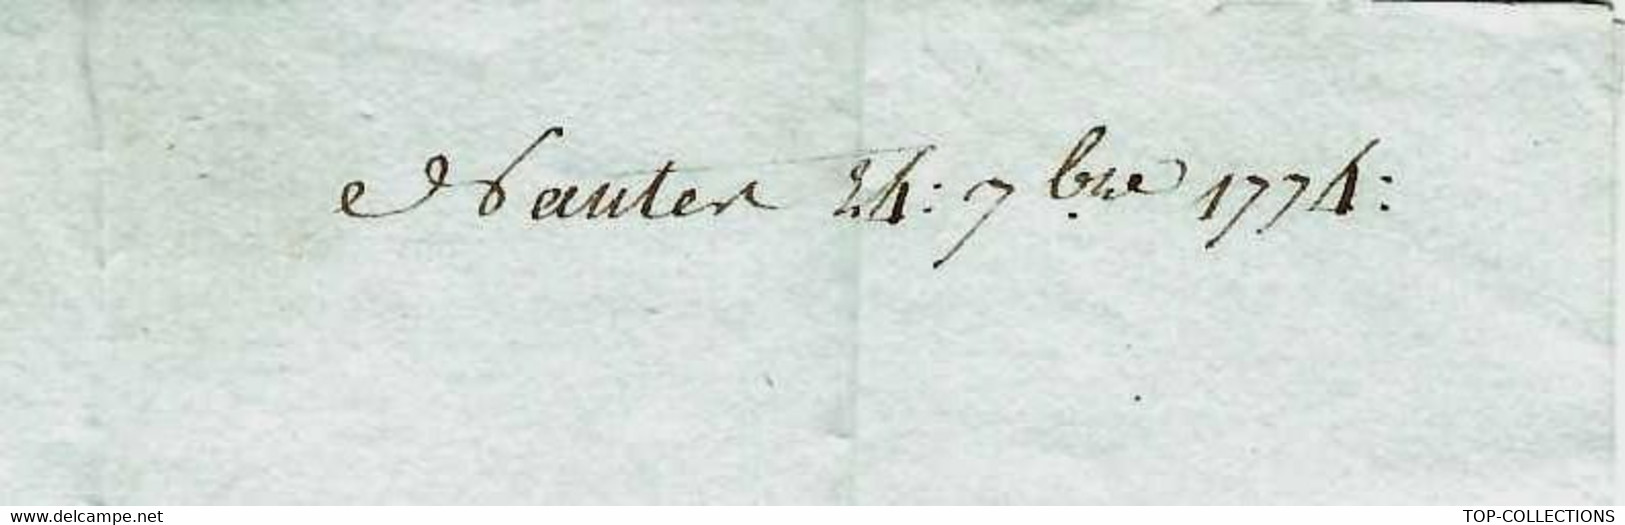 Nantes 24: 7bre 1774:
www.delcampe.net
TOP-COLLECTIONS